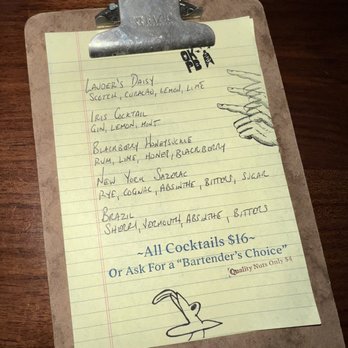 Lauder's Daisy
Scotch, Curacao, Lemon, Lime
Iris Cocktail
Gin, Lemon, Mint
Blackberry Honeysuckle
Rum, Lime, Honey, Blackberry
New York Sazerac
Rye, Cognac, Absinthe, Bitters, Sugar
Brazil
Sherry, Vermouth, Absinthe, Bitters
~All Cocktails $16~
Or Ask For a "Bartender's Choice"
*Quality Nuts Only $4